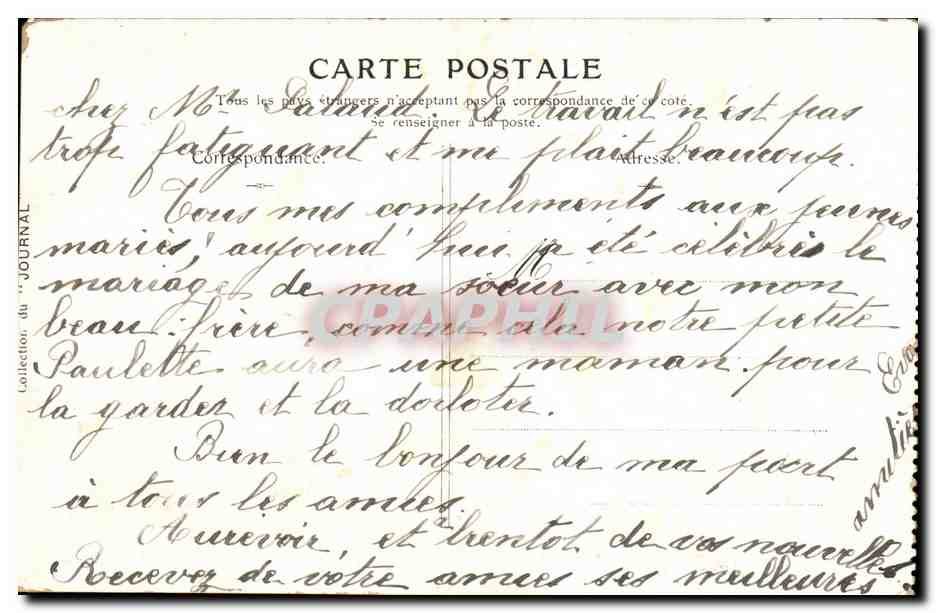 CARTE POSTALE
chez Mr Palaud. Le travail n'est pas
Tous les pays étrangers n'acceptant pas la correspondance de ce coté.
Se renseigner à la poste.
trop fatiguant et me plait beaucoup.
Correspondance. Adresse.
Tous mes compliments aux jeunes
mariés, aujourd'hui a été célébrés le
mariage de ma soeur avec mon
beau-frère, comme cela notre petite
Paulette aura une maman pour
la garder et la dorloter.
Bien le bonjour de ma part
à tous les amies.
Aurevoir, et bientot de vos nouvelles.
Recevez de votre amies ses meilleures
amitiés Eva
Collection du "JOURNAL
CPAPHIL